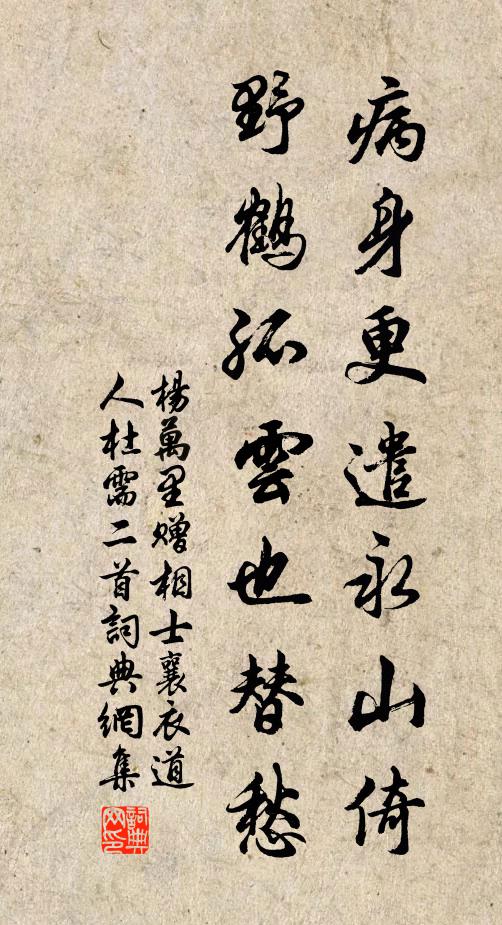 病身更遣永山倚
野鶴孤雲也替愁
楊萬里贈相士襄衣道
人杜需二首詞典網集
詞典
网印